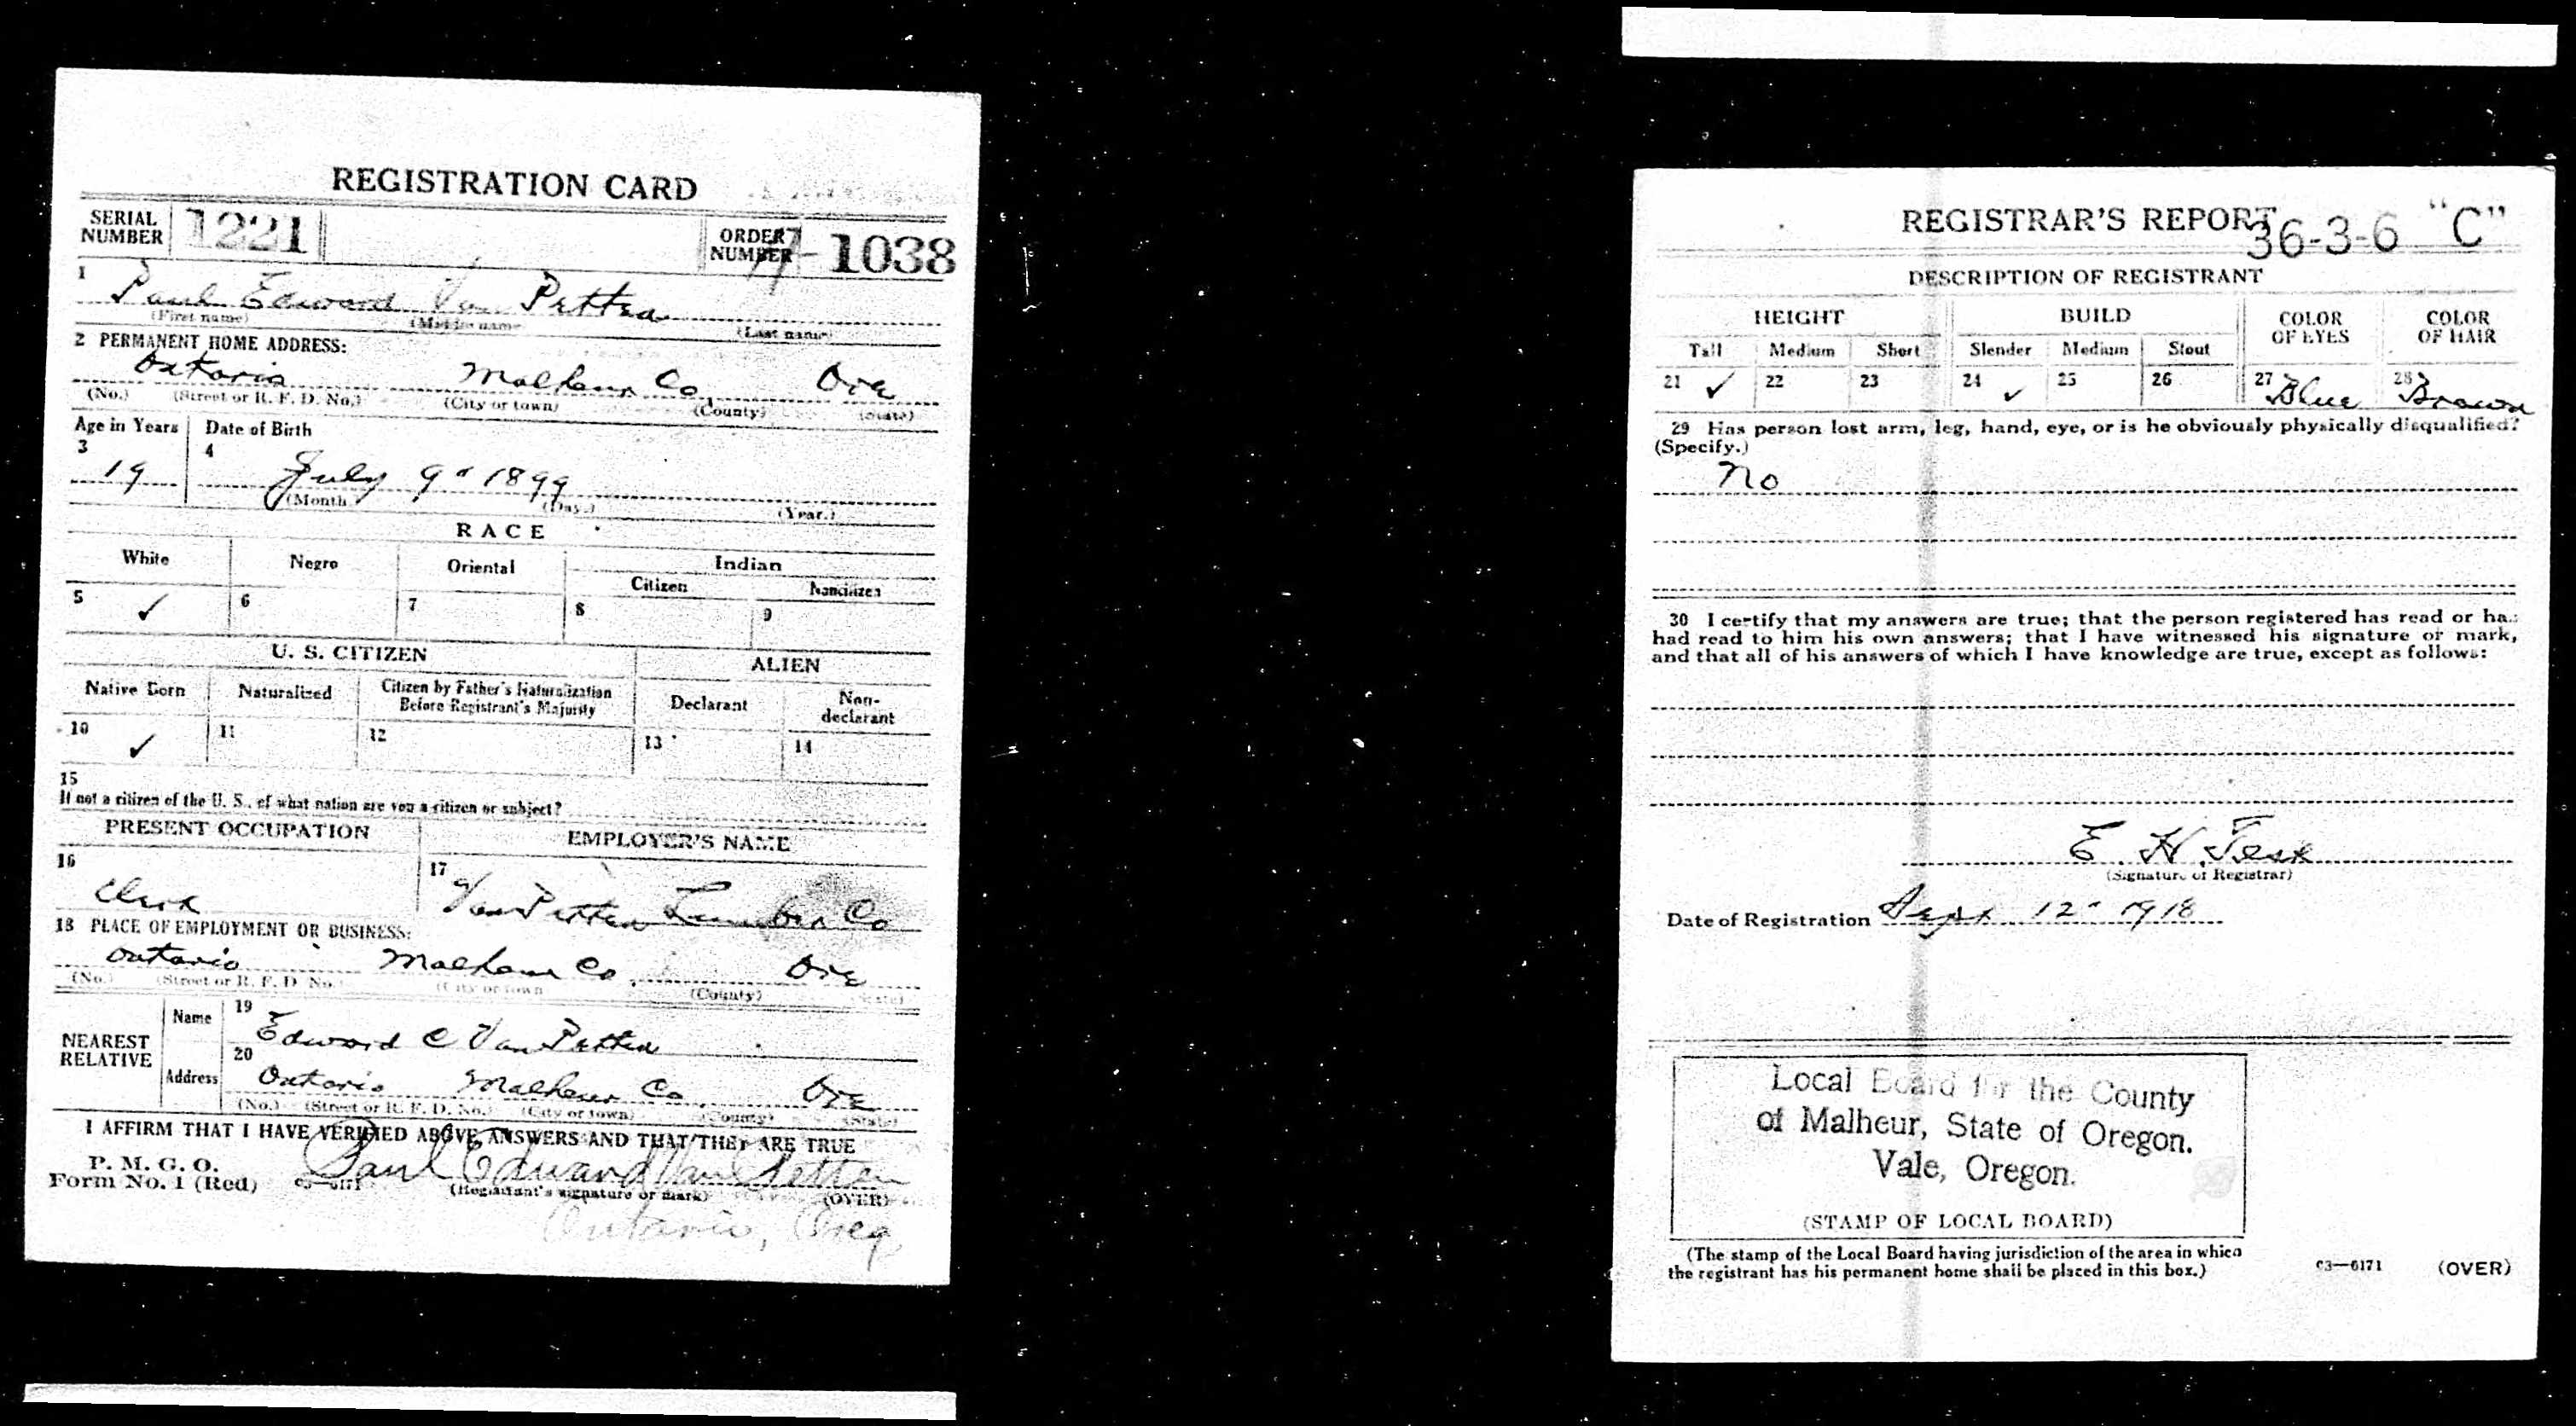 REGISTRATION CARD
SERIAL NUMBER 1221 ORDER NUMBER A-1038
1 Paul Edward Van Petten
(First name) (Middle name (Last name)
2 PERMANENT HOME ADDRESS:
Ontario Malheur Co, Ore
(No.) (Street or R. F. D. No.) (City or town) (County) (State)
Age in Years Date of Birth
3 19 4 July 9" 1899
(Month (Day.) (Year.)
RACE
White Negro Oriental Indian
Citizen Noncitizen
5 ✓ 6 7 8 9
U. S. CITIZEN ALIEN
Native Born Naturalized Citizen by Father's Naturalization Before Registrant's Majority Declarant Non-declarant
10 ✓ 11 12 13 14
15
If not a citizen of the U. S., of what nation are you a citizen or subject?
PRESENT OCCUPATION EMPLOYER'S NAME
16 Clerk 17 Van Petten Lumber Co
18 PLACE OF EMPLOYMENT OR BUSINESS:
Ontario Malheur Co, Ore
(No.) (Street or R. F. D. No.) (City or town (County) (State)
NEAREST RELATIVE
Name 19 Edward C Van Petten
Address 20 Ontario Malheur Co, Ore
(No.) (Street or R. F. D. No.) (City or town) (County) (State)
I AFFIRM THAT I HAVE VERIFIED ABOVE ANSWERS AND THAT THEY ARE TRUE
P. M. G. O.
Form No. 1 (Red) 03—6171 Paul Edward Van Petten
(Registrant's signature or mark) (OVER)
Ontario, Oreg
REGISTRAR'S REPORT 36-3-6 "C"
DESCRIPTION OF REGISTRANT
HEIGHT BUILD COLOR OF EYES COLOR OF HAIR
Tall Medium Short Slender Medium Stout
21 ✓ 22 23 24 ✓ 25 26 27 Blue 28 Brown
29 Has person lost arm, leg, hand, eye, or is he obviously physically disqualified?
(Specify.)
No
30 I certify that my answers are true; that the person registered has read or has
had read to him his own answers; that I have witnessed his signature or mark,
and that all of his answers of which I have knowledge are true, except as follows:
E. H. Test
(Signature of Registrar)
Date of Registration Sept 12" 1918
Local Board for the County
of Malheur, State of Oregon.
Vale, Oregon.
(STAMP OF LOCAL BOARD)
(The stamp of the Local Board having jurisdiction of the area in which
the registrant has his permanent home shall be placed in this box.)
03—6171 (OVER)